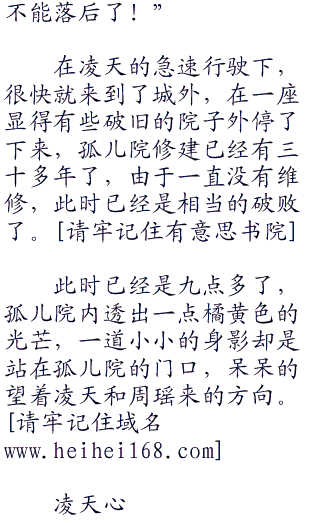 不能落后了！”
在凌天的急速行驶下，
很快就来到了城外，在一座
显得有些破旧的院子外停了
下来，孤儿院修建已经有三
十多年了，由于一直没有维
修，此时已经是相当的破败
了。[请牢记住有意思书院]
此时已经是九点多了，
孤儿院内透出一点橘黄色的
光芒，一道小小的身影却是
站在孤儿院的门口，呆呆的
望着凌天和周瑶来的方向。
[请牢记住域名
www.heihei168.com]
凌天心